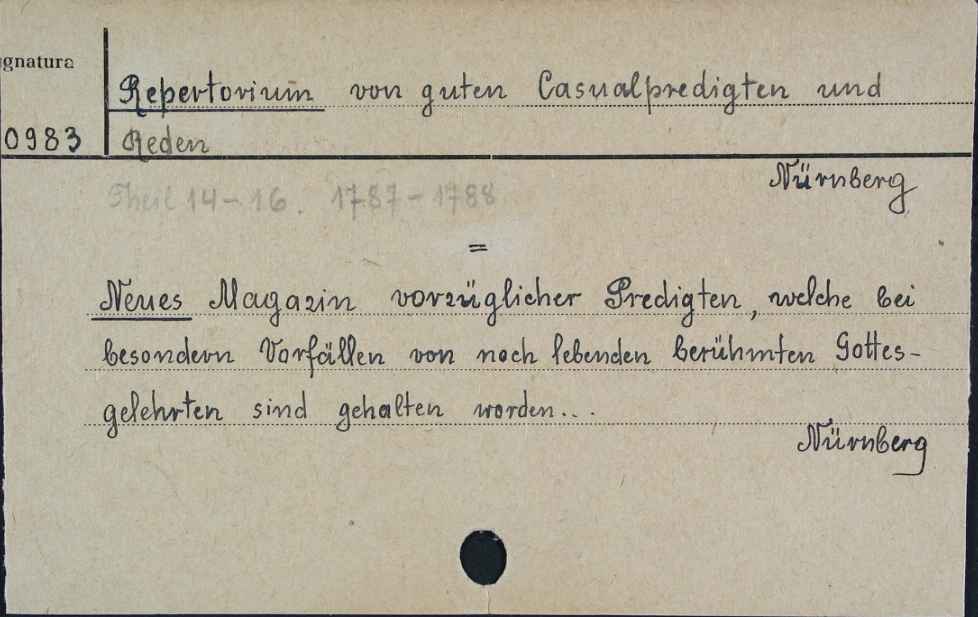 gnatura
Repertorium von guten Casualpredigten und
0983 Reden
Nürnberg
Theil 14-16. 1787-1788
=
Neues Magazin vorzüglicher Predigten, welche bei
besondern Vorfällen von noch lebenden berühmten Gottes-
gelehrten sind gehalten worden...
Nürnberg